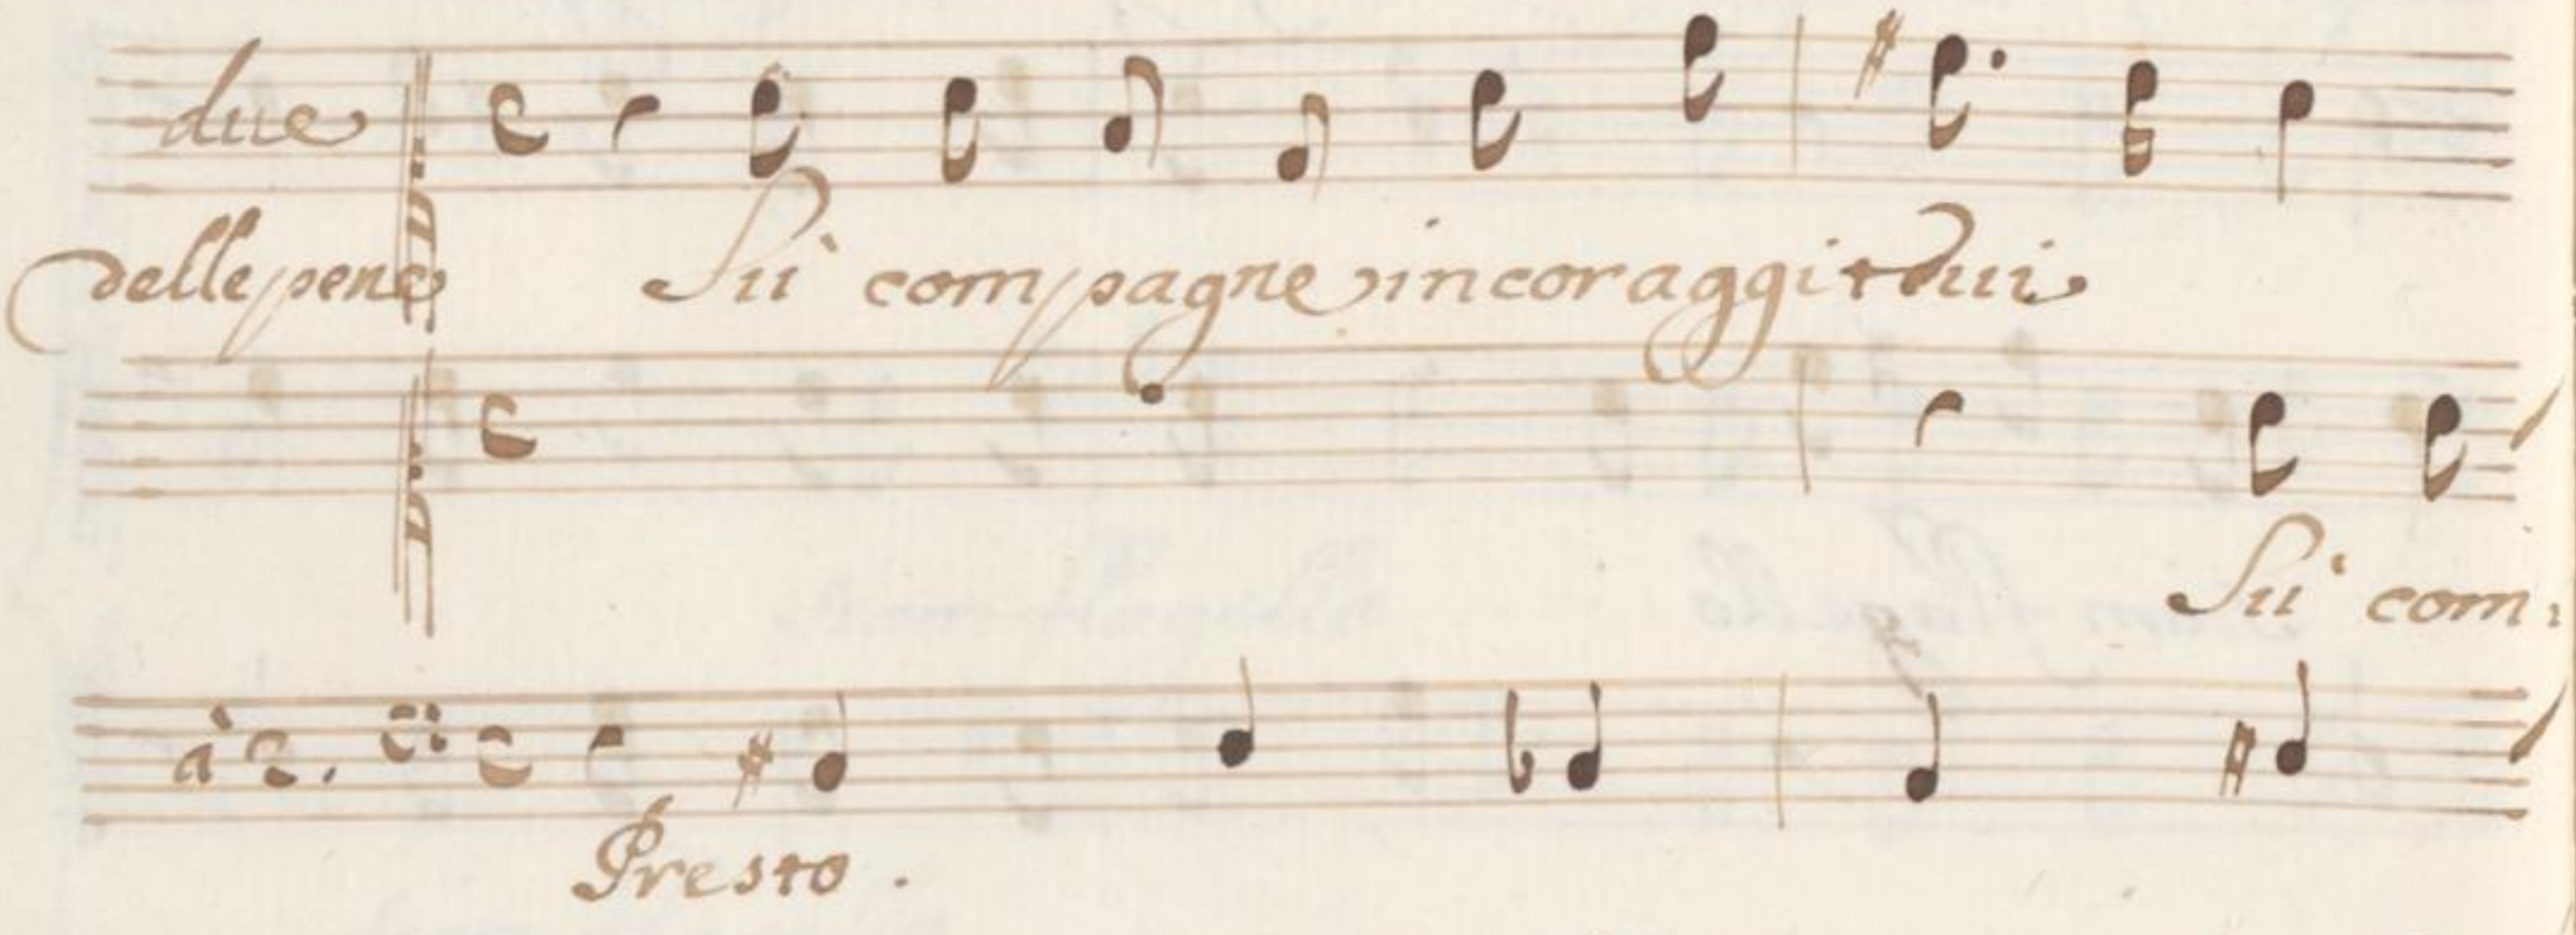 due
delle pene Sù compagne incoraggitevui
Sù com:
à 2.
Presto.